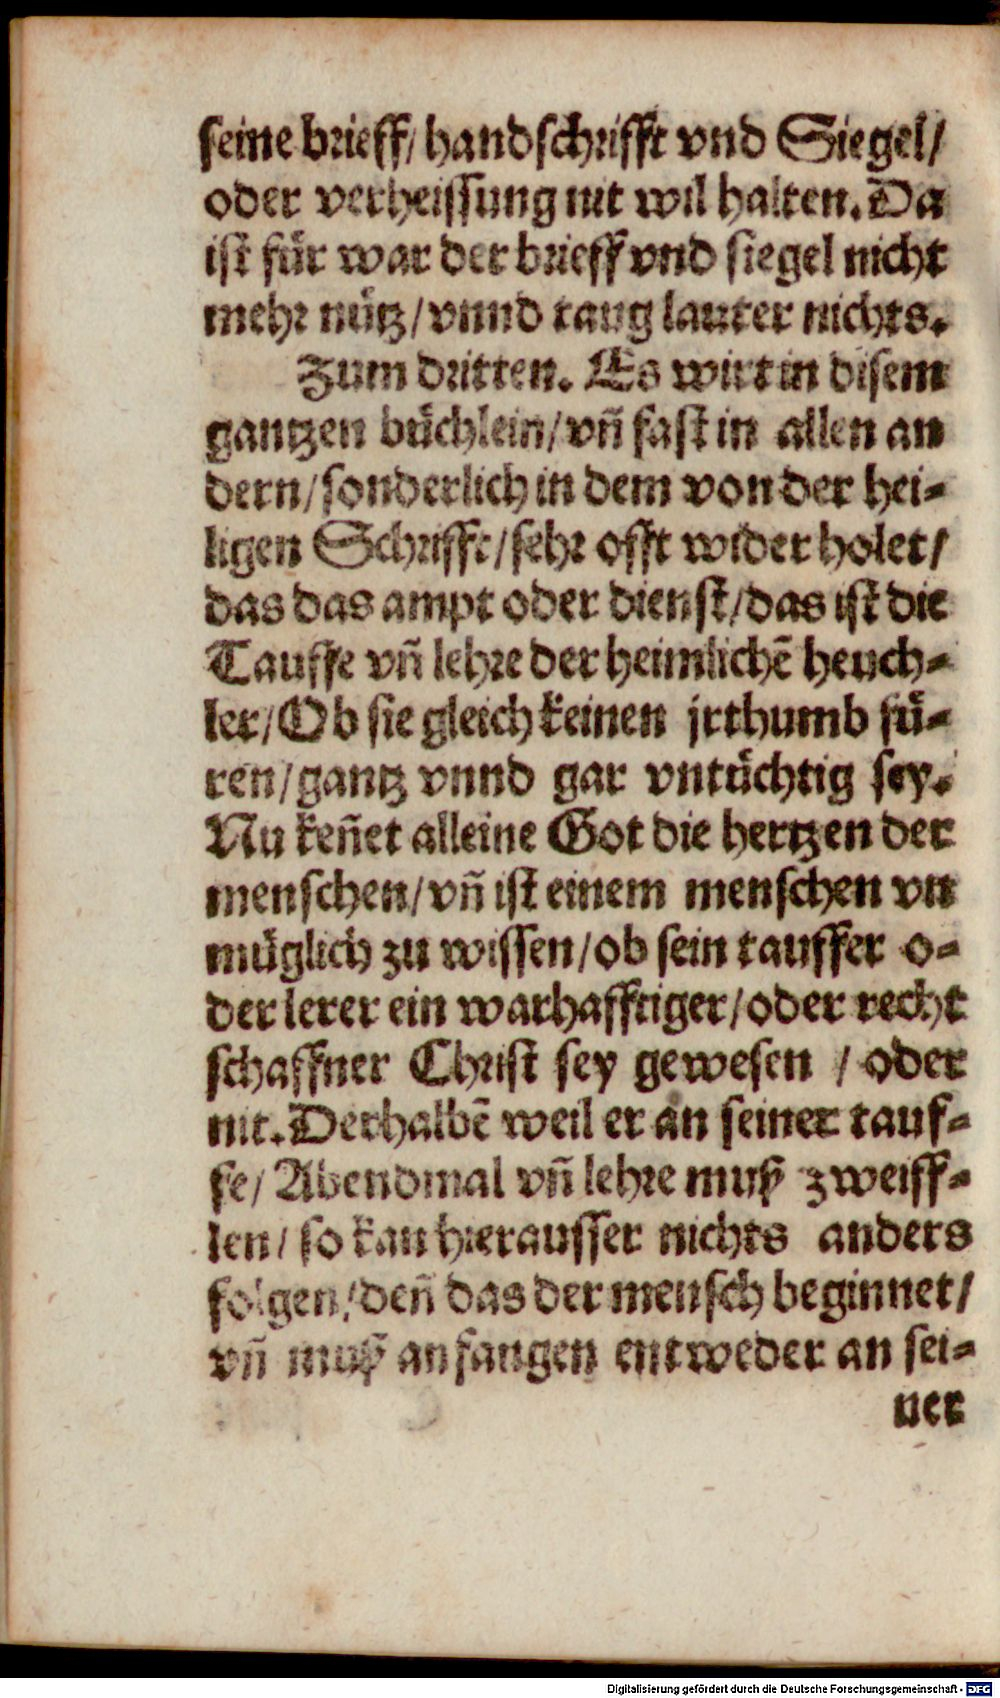 seine brieff/ handschrifft vnd Siegel/
oder verheissung nit wil halten. Da
ist für war der brieff vnd siegel nicht
mehr nütz/ vnnd taug lauter nichts.
Zum dritten. Es wirt in disem
gantzen büchlein/ vñ fast in allen an
dern/ sonderlich in dem von der hei-
ligen Schrifft/ sehr offt widerholet/
das das ampt oder dienst/ das ist die
Tauffe vñ lehre der heimlichẽ heuch-
ler/ Ob sie gleich keinen jrthumb fü-
ren/ gantz vnnd gar vntüchtig sey.
Nu keñet alleine Got die hertzen der
menschen/ vñ ist einem menschen vn
müglich zu wissen/ ob sein tauffer o-
der lerer ein warhafftiger/ oder recht
schaffner Christ sey gewesen / oder
nit. Derhalbẽ weil er an seiner tauf-
fe/ Abendmal vñ lehre muß zweiff-
len/ so kan hierausser nichts anders
folgen/ deñ das der mensch beginnet/
vñ muß anfangen entweder an sei-
ner
Digitalisierung gefördert durch die Deutsche Forschungsgemeinschaft - DFG